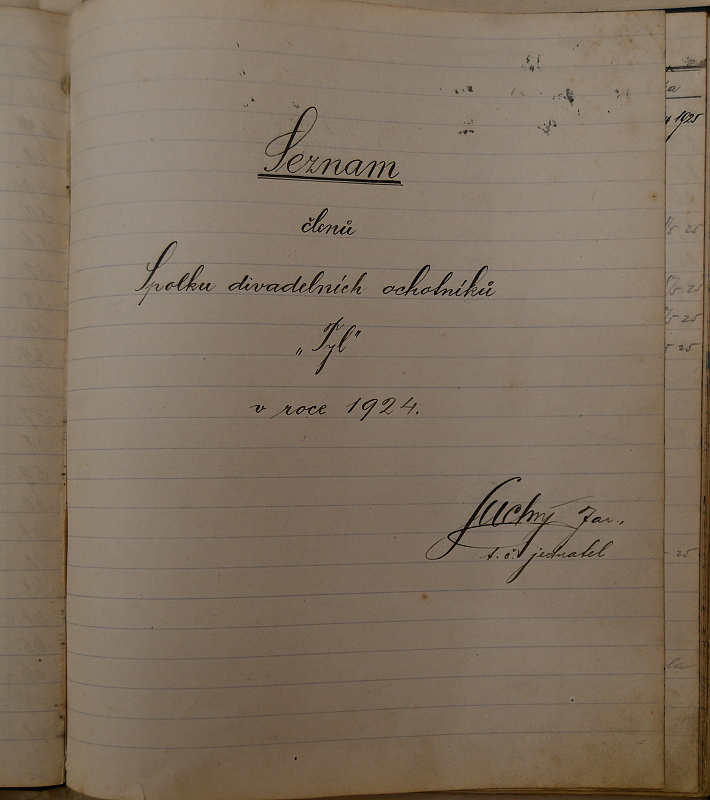 Seznam
členů
Spolku divadelních ochotníků
„Tyl"
v roce 1924.
Suchý Jar.,
t. č. jednatel
1925